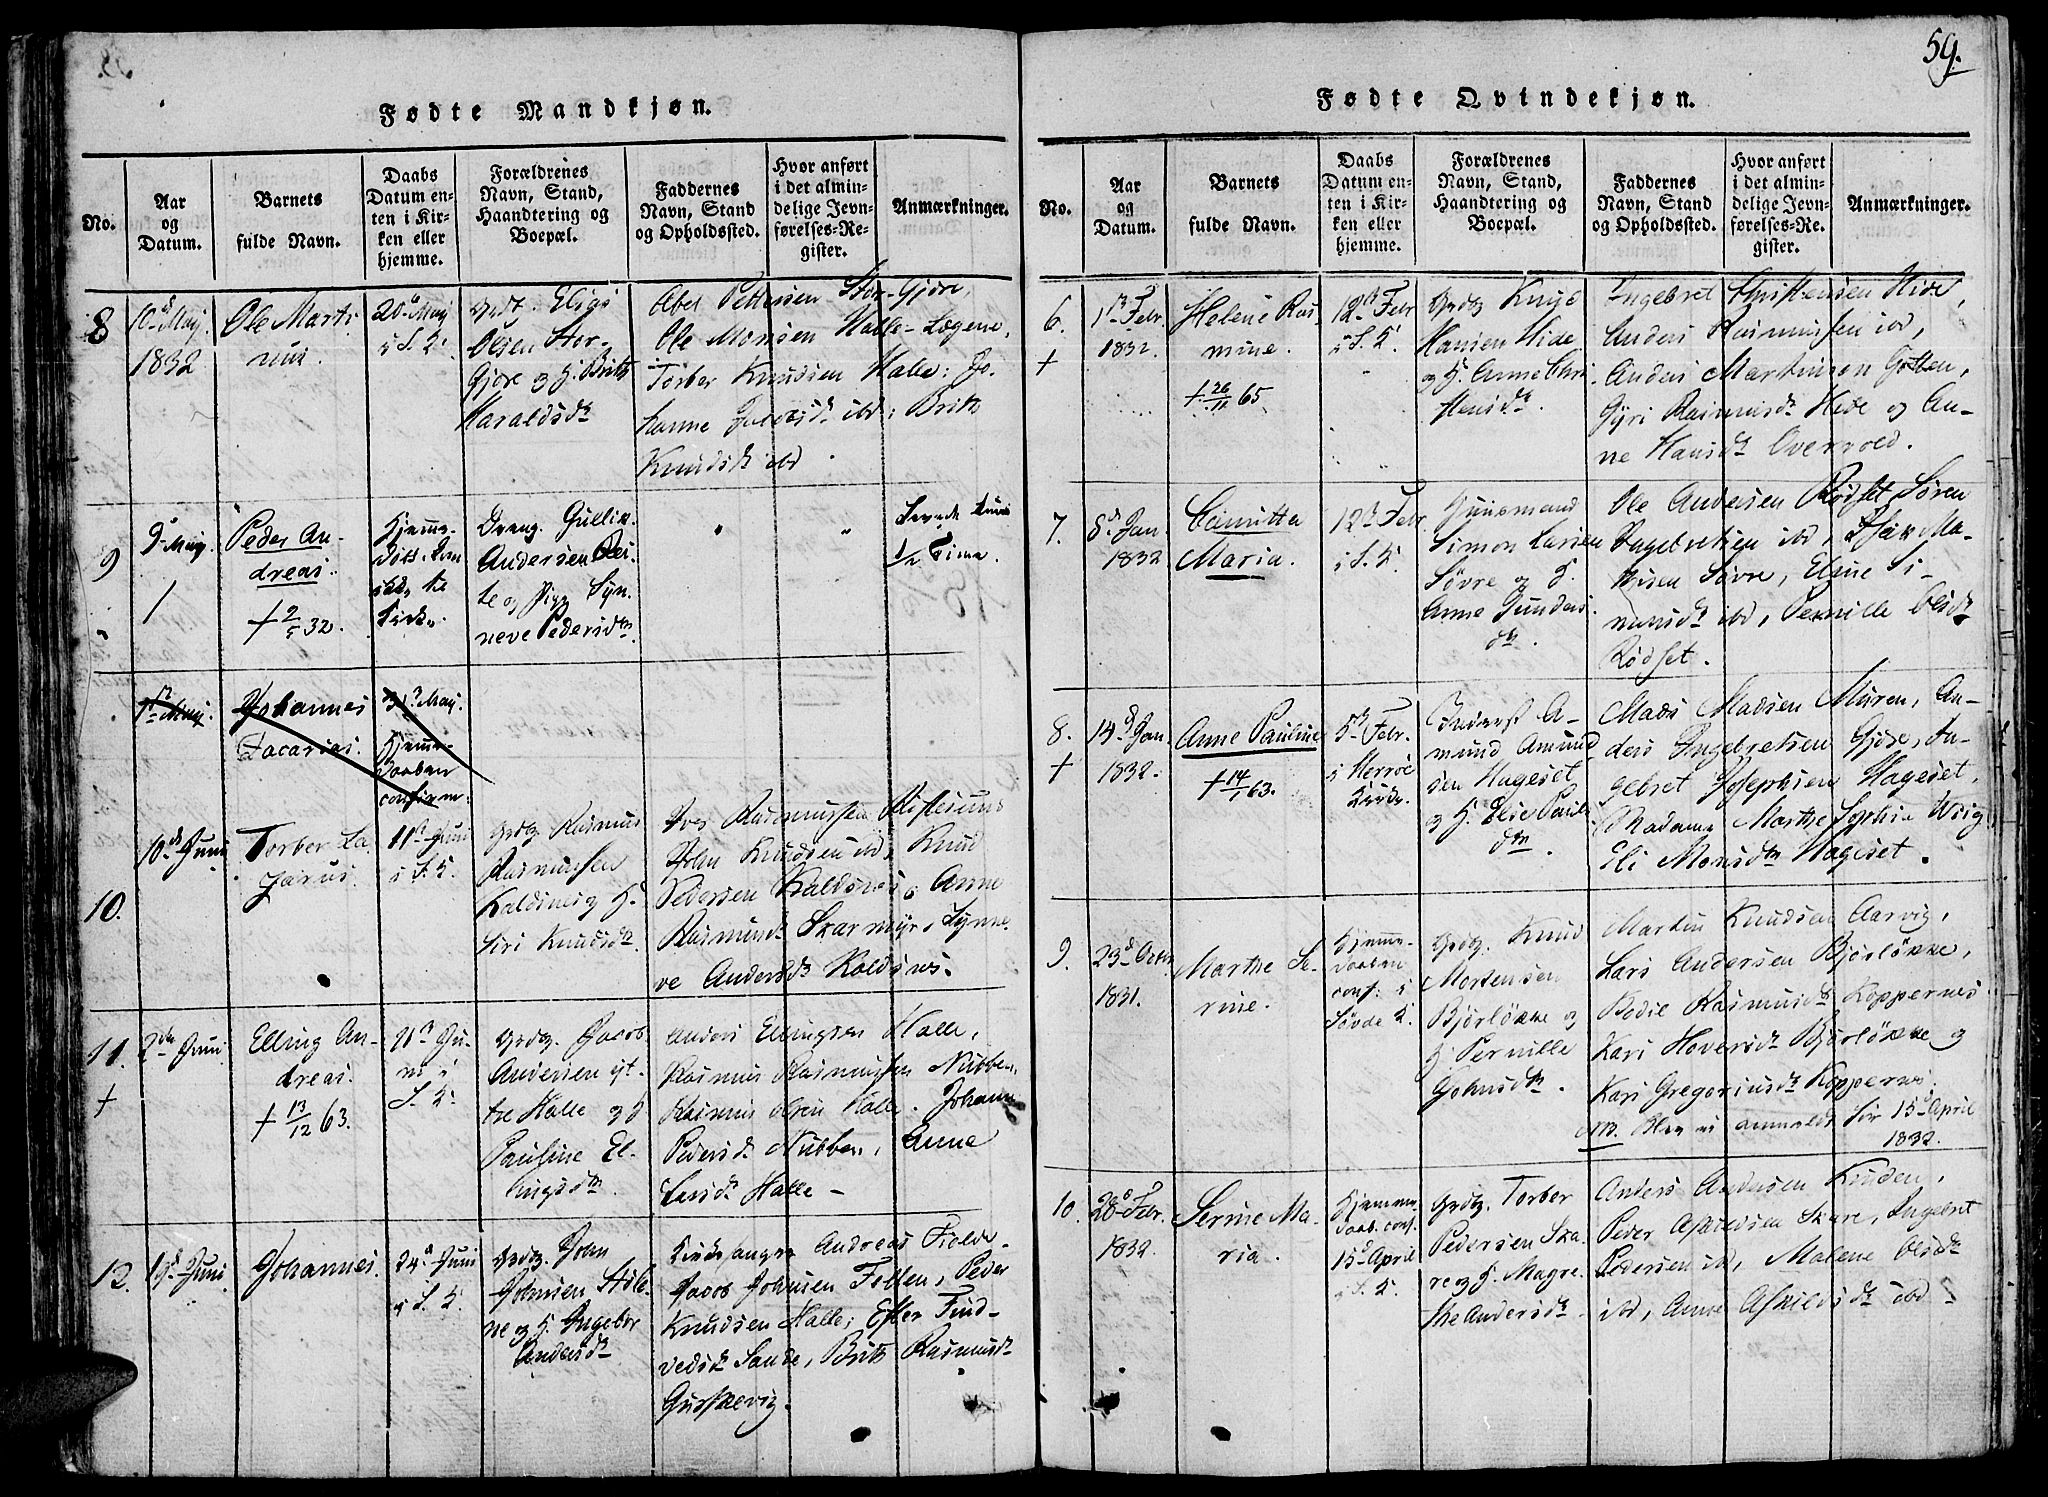 59.
Fødte Mandkjøn.
No.
Aar
og
Datum.
Barnets
fulde Navn.
Daabs
Datum en-
ten i Kir-
ken eller
hjemme.
Forældrenes
Navn, Stand,
Haandtering og
Boepæl.
Faddernes
Navn, Stand
og Opholdssted.
Hvor anført
i det almin-
delige Jevn-
førelses-Re-
gister.
Anmærkninger.
8
10d Maij
1832
Ole Marti
nus.
20d Maij
i S. K.
Grdb. Elias
Olsen Stor-
Gjøre og H. Brith
Haraldsdtr
Abel Pettersen Stor-Gjøre,
Ole Monsen Halle-Løgene,
Torber Knudsen Halle; Jo-
hanne Jacobsd. ibd; Brith
Knudsdr ibd.
9
9d Maij
Peder An-
dreas.
+ 2/5 32.
Hjemme-
Kirke.
Dreng Gullik
Andersen
te og Pige Syn-
neve Pedersdtr
Levede kun
1/2 Time.
1te Maij
Johannes
Zacarias.
Maij.
Hjemme-
daaben
confirm.
10.
10d Juni
Torber La-
zarus.
11te Juni
i S. K.
Grdb. Rasmus
Rasmussen
Koldsnes og H.
Siri Knudsdtr
Iver Rasmussen Riksesund
John Knudsen ibd, Knud
Pedersen Koldsnes, Anne
Rasmusdr Skarmyr, Synne-
ve Andersdr Koldsnes.
11.
+
2den Juni
Elling An-
dreas.
+ 13/12 63.
11te Ju-
ni i
S. K.
Grdb. Jacob
Andersen yt-
tre Halle og H
Pauline El-
lingsdtr.
Anders Ellingsen Halle,
Rasmus Rasmussen Nubben,
Rasmus Olsen Halle. Johann
Pedersd. Nubben, Anne
Larsdr Halle -
12.
19d Juni
Johannes.
24d Juni
i S. K.
Grdb. John
Johnsen Støle-
ne og H. Ingebor
Andersdr
Kirkesanger Andreas Fiolde-
Jacob Johnsen Follen, Peder
Knudsen Halle, Ester Find-
vedsdr Sande, Brith Rasmusdr
Gurskevig.
Fødte Qvindekjøn.
No.
Aar
og
Datum.
Barnets
fulde Navn.
Daabs
Datum en-
ten i Kir-
ken eller
hjemme.
Forældrenes
Navn, Stand,
Haandtering og
Boepæl.
Faddernes
Navn, Stand
og Opholdssted.
Hvor anført
i det almin-
delige Jevn-
førelses-Re-
gister.
Anmærkninger.
6.
+
1te Febr.
1832.
Helene Ras-
mine.
+ 26/12 65
12te Febr
i S. K.
Grdb Knud
Hansen Hide
og H. Anne Chri
stensdr.
Ingebret Christensen Hide,
Anders Rasmussen ibd,
Anders Martinson Gotten,
Gyri Rasmusdr Hide og An-
ne Hansdtr Overvold.
7.
8d Jan.
1832
Maria.
12te Febr
i S. K.
Huusmand
Simon Larsen
Søvre og H.
Anne Gunders-
dtr
Ole Andersen Rødset Søren
Ingebretsen ibd, Isak Ma-
thisen Søvre, Eline Si-
monsdr ibd, Pernille Olsdr
Rødset.
8.
+
14d Jan.
1832.
Anne Pauline
+ 14/1 63.
5te Febr.
i Herrøe
Kirke.
Inderst A-
mund Amund
sen Hageset
og H. Else Pauls
dtr.
Mads Madsen Muren, An-
ders Ingebretsen Gjøre, In-
gebret Josephsen Hageset,
Madame Marthe Sophie Wiig
Eli Monsdtr Hageset.
9.
23d Octbr
1831.
Marthe Se-
rine.
Hjemme-
daaben
conf: i
Søvde K.
Grdb. Knud
Mortensen
Bjørløkke og
H. Pernille
Johnsdtr.
Martin Knudsen Aarvig,
Lars Andersen Bjørløkke,
Bodil Rasmusdr Koppernes
Kari Hoversdr Bjørløkke og
Kari Gregoriusdr Koppernes.
NB. Blev ei anmeldt før 15d April
1832.
10.
28d Febr.
1832.
Serine Ma-
ria.
Hjemme
daab. conf.
15d April
i S. K.
Grdb. Torber
Pedersen Ska-
re og H. Magre-
the Andersdr.
Anders Andersen Knuden,
Peder Askildsen Skare, Ingebret
Pedersen ibd, Malene Olsdtr
ibd, Anne Askildsdr ibd -